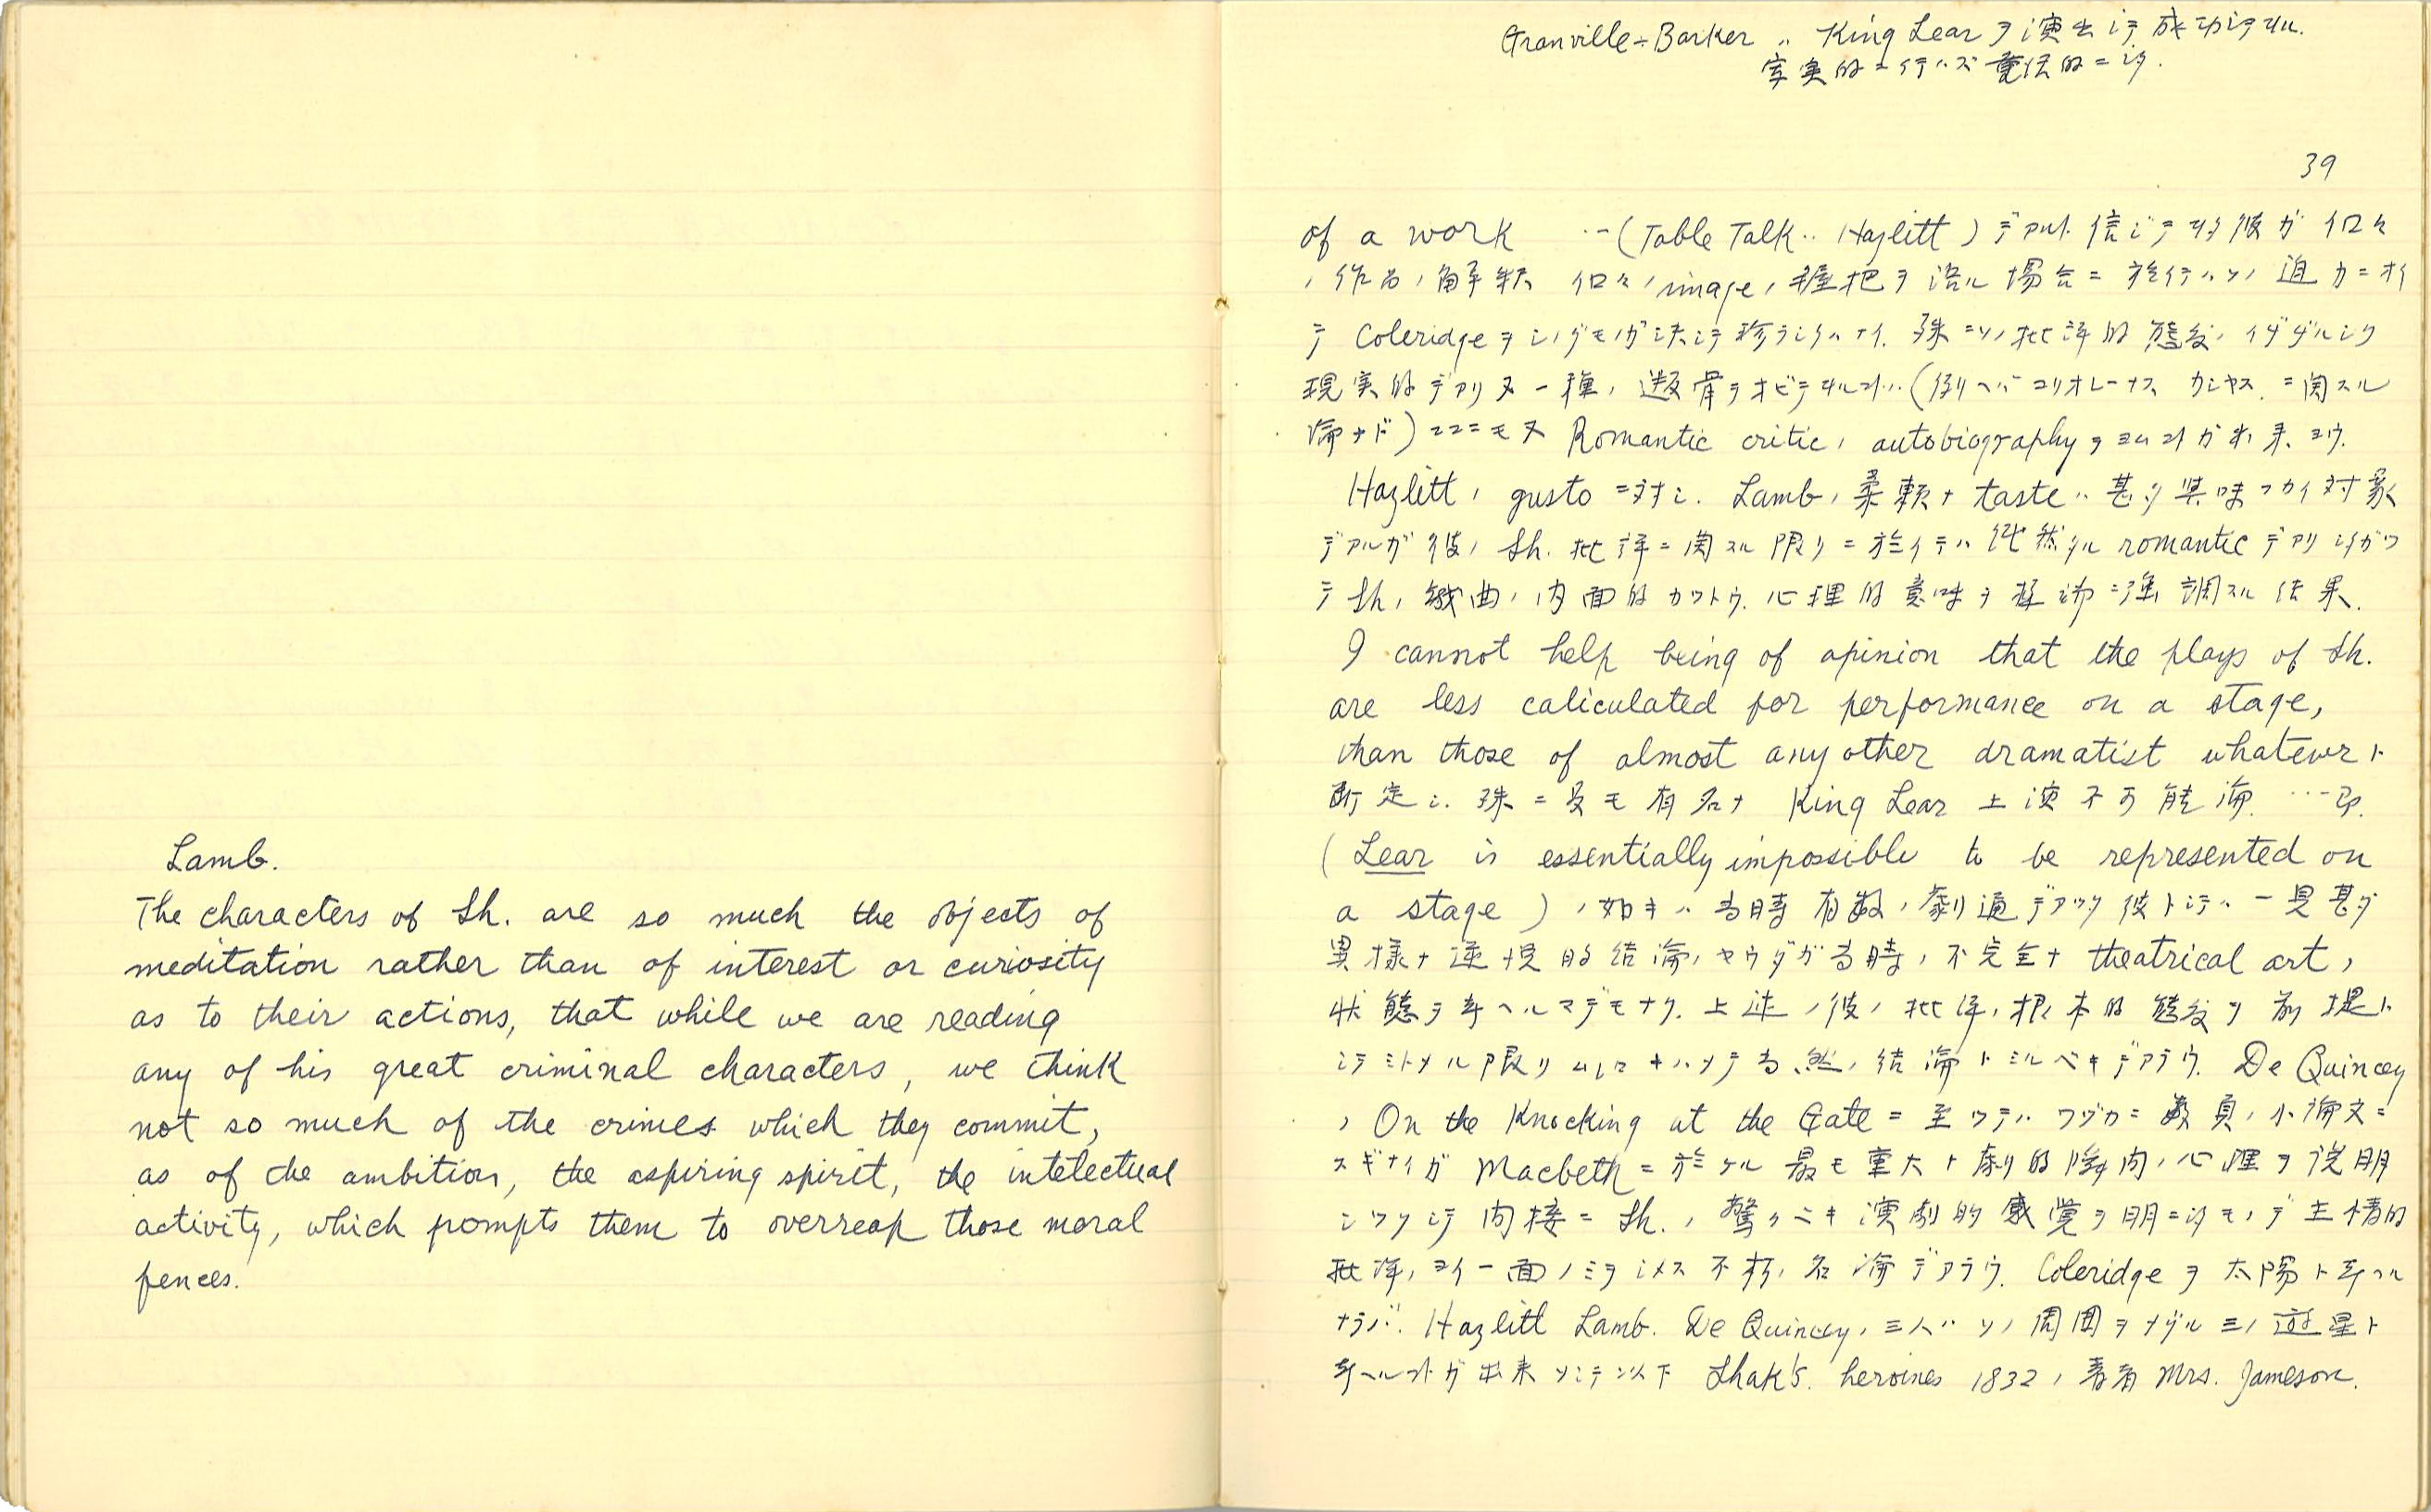 Lamb.
The characters of Sh. are so much the objects of
meditation rather than of interest or curiosity
as to their actions, that while we are reading
any of his great criminal characters, we think
not so much of the crimes which they commit,
as of the ambition, the aspiring spirit, the intelectual
activity, which prompts them to overreap those moral
fences.
Granville-Barker ハ King Lear ヲ演出シテ成功シテヰル.
写実的ニ行ハズ
39
of a work …(Table Talk.. Hazlitt) デアル. 信ジテヰタ彼ガ イロ々
ノ作品ノ解釈 イロ々ノ image ノ握把ヲ語ル場合ニ於イテハソノ迫力ニオイ
テ Coleridge ヲシノグモノガ決シテ珍ラシクハナイ. 殊ニソノ批評的態度ノイチヂルシク
現実的デアリ又一種ノ叛骨ヲオビテヰルコトハ (例ヘバ コリオレーナス カシヤス ニ関スル
論ナド) ココニモ又 Romantic critic ノ autobiography ヲヨムコトガ出来ヨウ.
Hazlitt ノ gusto ニ対シ. Lamb ノ柔軟ナ taste ハ甚ダ興味フカイ対象
デアルガ彼ノ Sh. 批評ニ関スル限リニ於イテハ純然タル romantic デアリ シタガツ
テ Sh ノ戯曲ノ内面的カツトウ. 心理的意味ヲ極端ニ強調スル結果.
I cannot help being of opinion that the plays of Sh.
are less caliculated for performance on a stage,
than those of almost any other dramatist whatever ト
断定シ. 殊ニ最モ有名ナ King Lear 上演不可能論. …即.
(Lear is essentially impossible to be represented on
a stage) ノ如キハ当時有数ノ劇通デアツタ彼トシテハ一見甚ダ
異様ナ逆説的結論ノヤウダガ当時ノ不完全ナ theatrical art ノ
状態ヲ考ヘルマデモナク. 上述ノ彼ノ批評ノ根本的態度ヲ前提ト
シテミトメル限リムシロ キハメテ当然ノ結論トミルベキデアラウ. De Quincey
ノ On the Knocking at the Gate ニ至ツテハワヅカニ数頁ノ小論文ニ
スギナイガ Macbeth ニ於ケル最モ重大ナ劇的瞬間ノ心理ヲ説明
シツクシテ間接ニ Sh. ノ驚クベキ演劇的感覚ヲ明ニシタモノデ主情的
批評ノヨイ一面ノミヲシメス不朽ノ名論デアラウ. Coleridge ヲ太陽ト考ヘル
ナラバ. Hazlitt Lamb. De Quincey ノ三人ハソノ周囲ヲメグル三ノ遊星ト
考ヘルコトガ出来ソシテ以下 Shak's. heroines 1832 ノ著者 Mrs. Jameson.